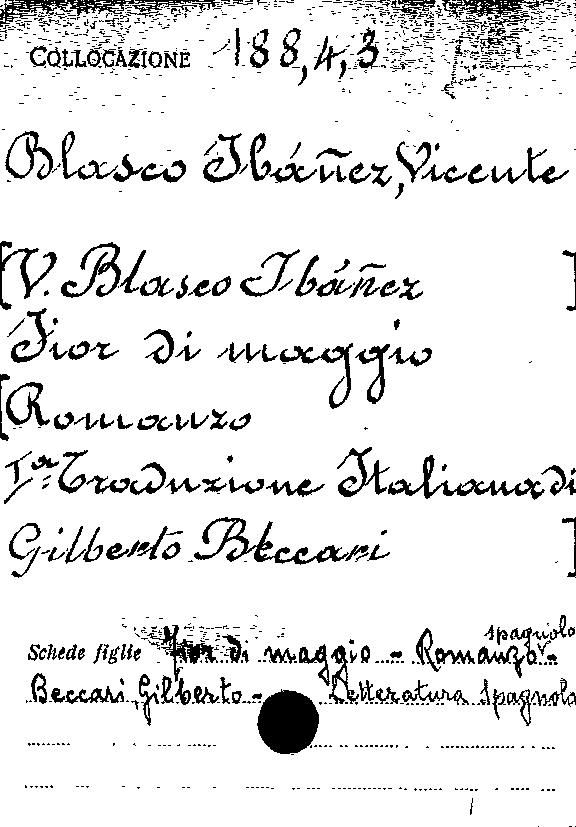 COLLOCAZIONE 188,4,3
Blasco Ibáñez, Vicente
[V. Blasco Ibáñez]
Fior di maggio
[Romanzo
Iª Traduzione Italiana di
Gilberto Beccari]
spagnolo
Schede figlie Fior di maggio - Romanzo -
Beccari, Gilberto - Letteratura spagnola